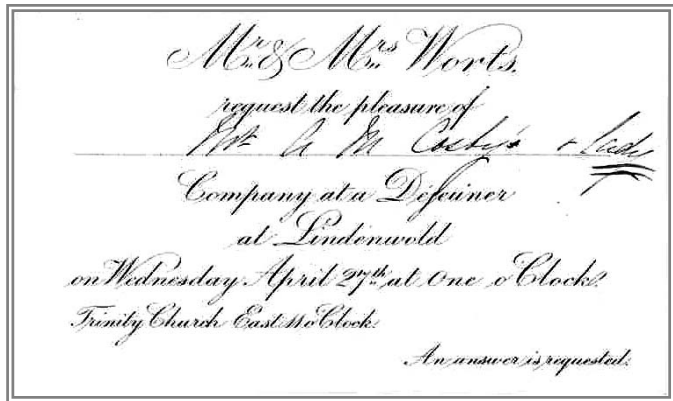 Mr. & Mrs. Worts.
request the pleasure of
Mr A M Cosby's & Lady
Company at a Déjeûner
at Lindenwold
on Wednesday April 27th at One o'Clock.
Trinity Church East 11 o'Clock.
An answer is requested.